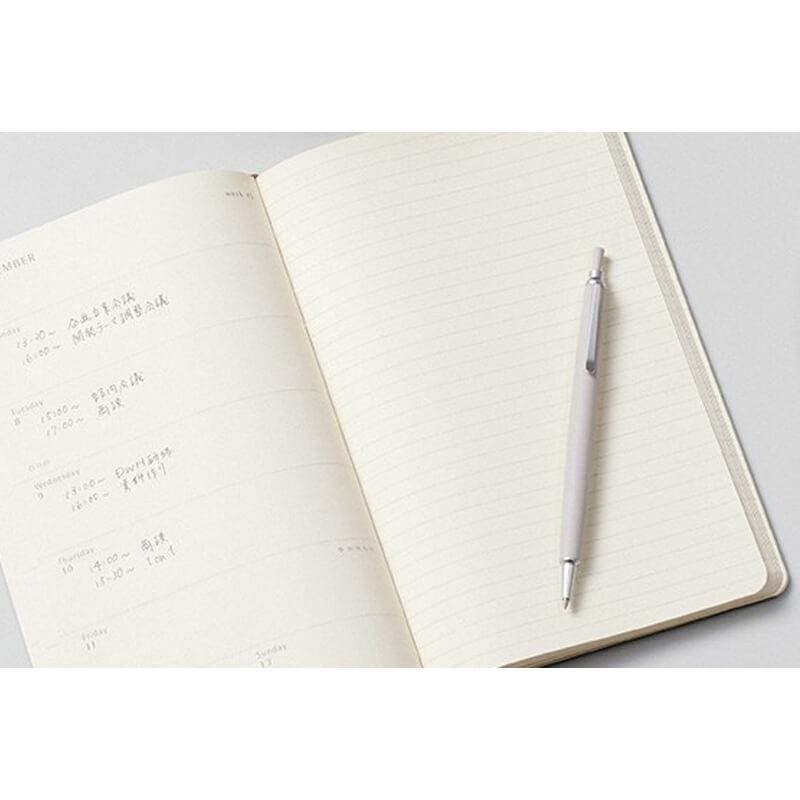 EMBER
week 45
nday
13:30〜 企画営業会議
16:00〜 開発テーマ調整会議
Tuesday
8 15:00〜 部内会議
17:00〜 商談
Wednesday
9 13:00〜 DWH研修
16:00〜 資料作り
Thursday
10 14:00〜 商談
15:30〜 1on1
Friday
11
Sunday
13